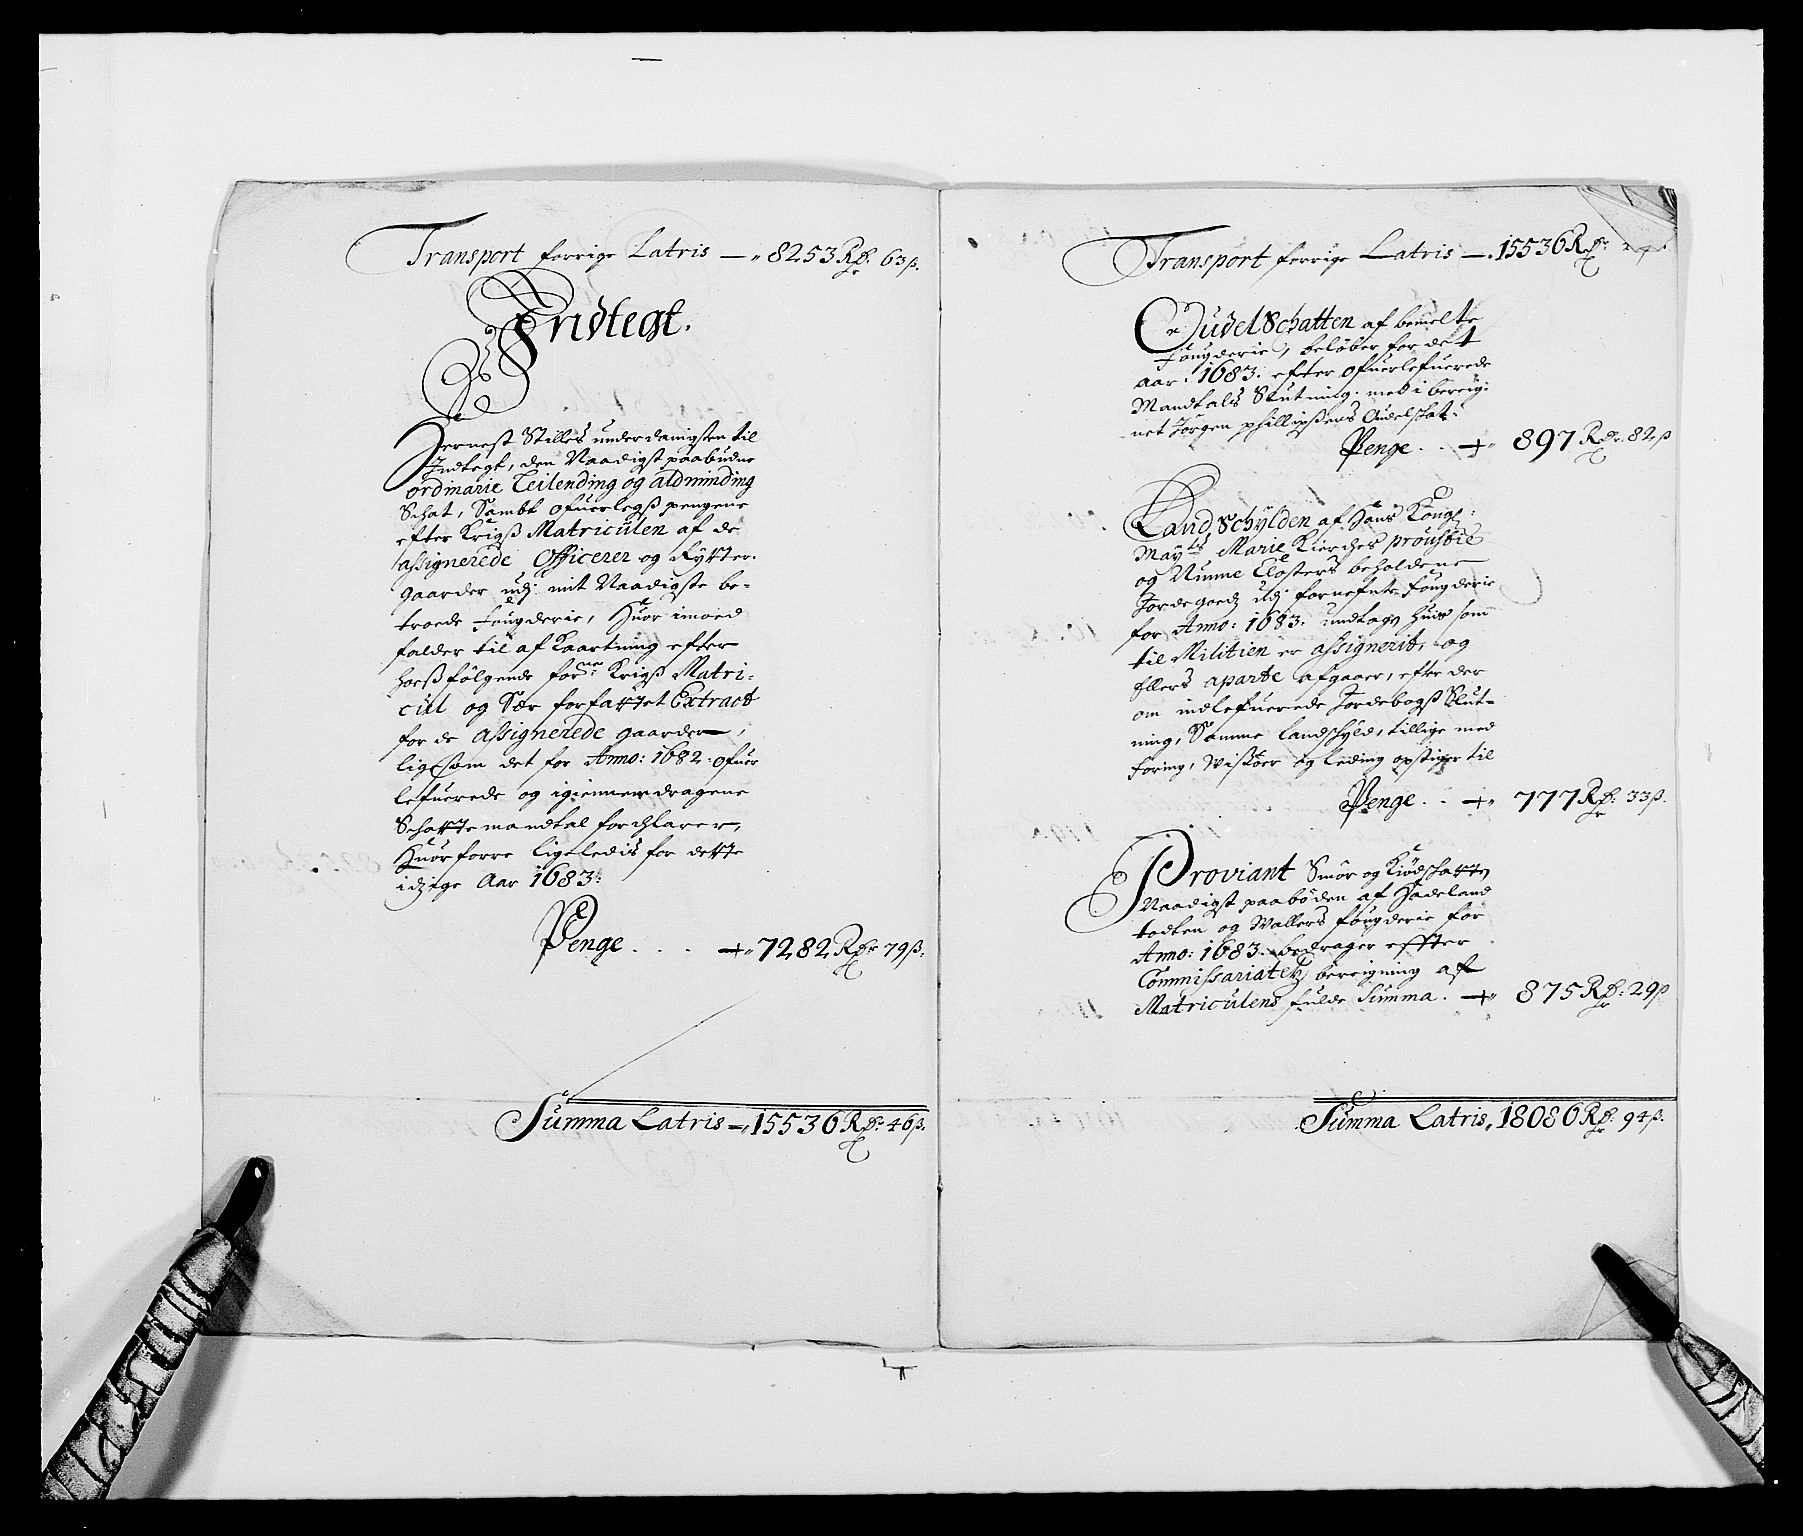 Transport forrige Latris — 8253 Rdr: 63 ß.
Indtegt.
Hernest Stilles underdanigsten til
Indtegt, den Naadigst paabudne
ordinarie Leilending og aldminding
Schat, Sambt ofuerlegß pengene
efter Krigß Matriculen af de
assignerede Officerer og Rytter-
gaarder udj mit Naadigste be-
troede Fougderie, Huor imoed
falder til af Kaartning efter
hoesfølgende forne: Krigß Matri-
cul og Sær forfattet Extract
for de assignerede gaarder,
ligesom det for Anno: 1682. ofuer
lefuerede og igiennemdragene
Schattemandtal forchlarer,
Huorforre ligeledis for dette
idzige Aar 1683.
Penge . . . 7282 Rdr 79 ß.
Summa Latris — 15536 Rdr: 46 ß.
Transport forrige Latris — 15536 Rdr:
Oudel Schatten af bemelte
Fougderie, beløber for det
aar. 1683. efter ofuerlefuerede
Mandtals Slutning. med ibereig-
net Jørgen phillipßens Oudelschat.
Penge . . 897 Rdr. 82 ß
Land Schylden af Hans Kongl:
Mayts Marie Kierches proustie
og Nunne Closters beholdene
Jordegoedz udj fornefnte Fougderie
for Anno: 1683. undtagen huis som
til Militien er assignerit, og
Ellers aparte afgaaer, efter der
om indlefuerede Jordebogß Slut-
ning, Samme landschyld, tillige med
foring, Wissøer og leding opstiger til
Penge . . 777 Rdr: 33 ß.
Proviant Smør og Kiødschatten
Naadigst paabøden af Hadeland
todten og Wallers fougderie for
Anno: 1683. bedrager effter
Commissariatetz bereigning af
Matriculens fulde Summa. 875 Rdr: 29 ß
Summa Latris, 18086 Rdr: 94 ß.